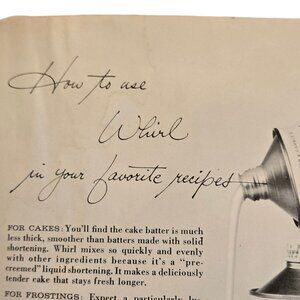 How to use
Whirl
in your favorite recipes
FOR CAKES: You'll find the cake batter is much
less thick, smoother than batters made with solid
shortening. Whirl mixes so quickly and evenly
with other ingredients because it's a "pre-
creemed" liquid shortening. It makes a deliciously
tender cake that stays fresh longer.
FOR FROSTINGS: Expert a particularly